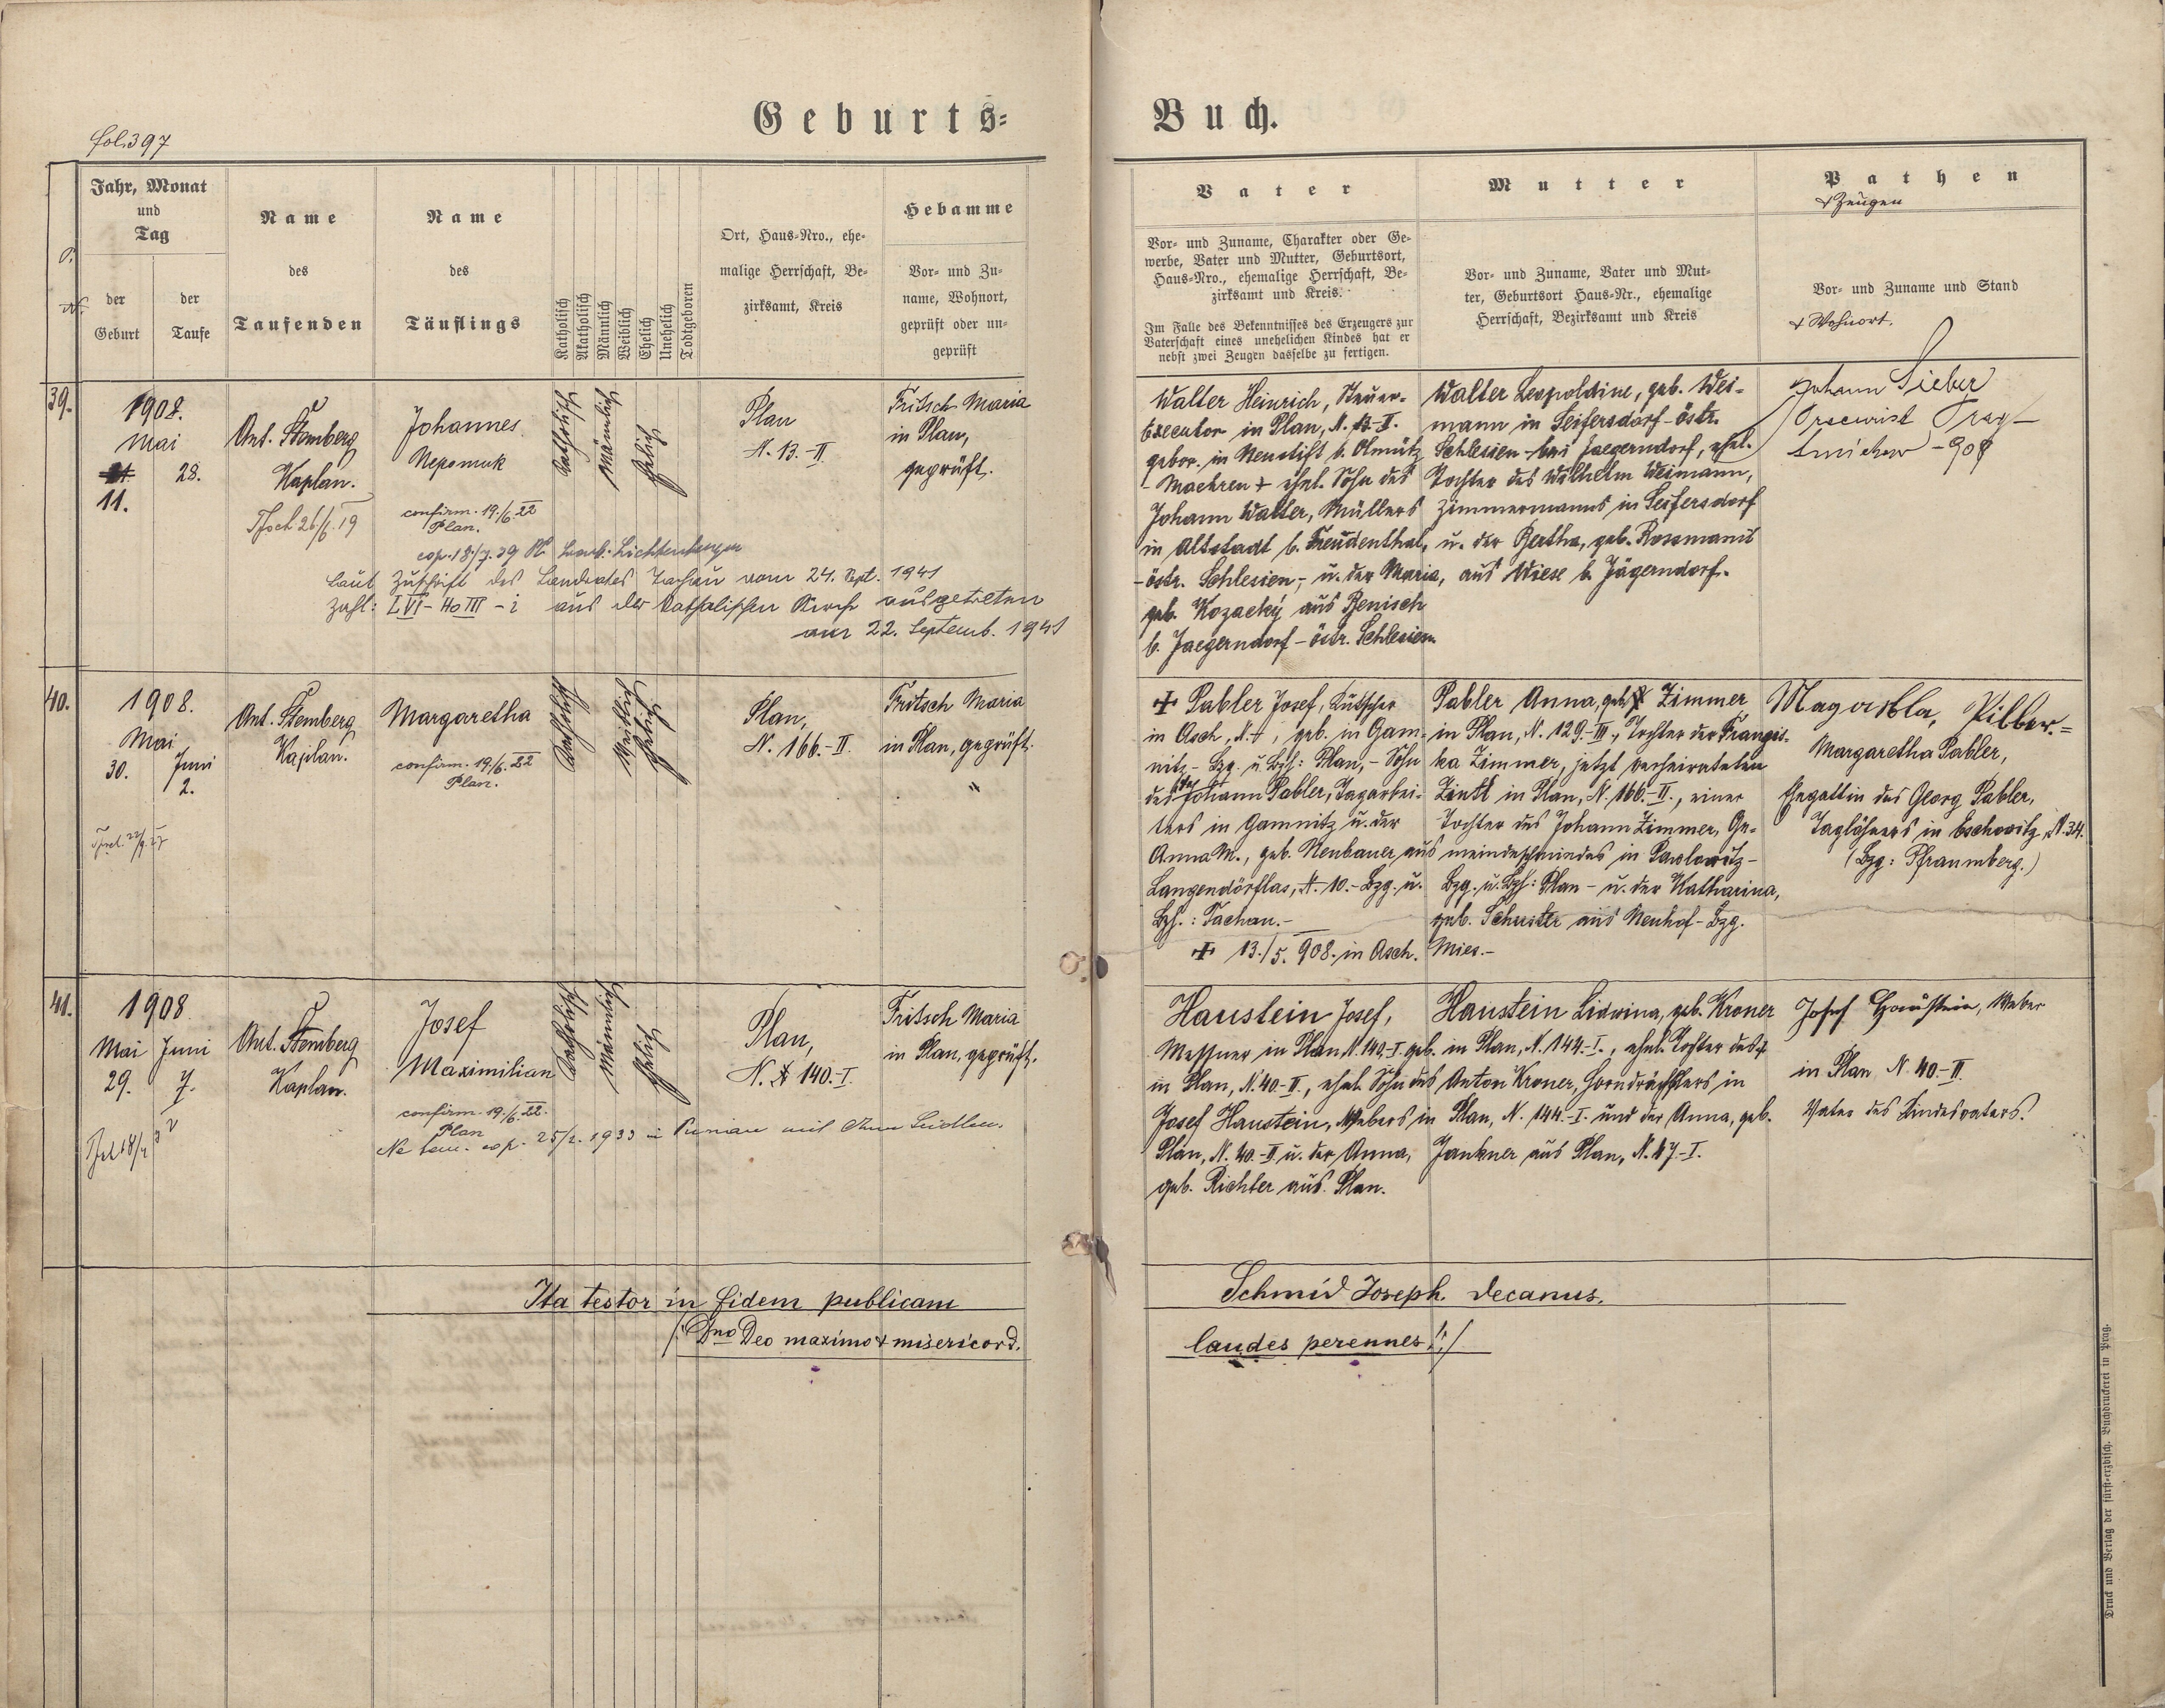 Geburts=
Buch.
fol. 397
Jahr, Monat
und
Tag
der
Geburt
der
Taufe
Name
des
Taufenden
Name
des
Täuflings
Katholisch
Akatholisch
Männlich
Weiblich
Ehelich
Unehelich
Todtgeboren
Ort, Haus-Nro., ehe-
malige Herrschaft, Be-
zirksamt, Kreis
Hebamme
Vor- und Zu-
name, Wohnort,
geprüft oder un-
geprüft
Vater
Vor- und Zuname, Charakter oder Ge-
werbe, Vater und Mutter, Geburtsort,
Haus-Nro., ehemalige Herrschaft, Be-
zirksamt und Kreis.
Im Falle des Bekenntnisses des Erzeugers zur
Vaterschaft eines unehelichen Kindes hat er
nebst zwei Zeugen dasselbe zu fertigen.
Mutter
Vor- und Zuname, Vater und Mut-
ter, Geburtsort Haus-Nr., ehemalige
Herrschaft, Bezirksamt und Kreis
Pathen
& Zeugen
Vor- und Zuname und Stand
& Wohnort.
39.
1908.
Mai
28.
11.
Ant. Stemberg
Kaplan.
Johannes
Nepomuk
confirm. 19./6. 22
Plan.
Katholisch
Männlich
Ehelich
Plan
N. 13.-II.
Fritsch Maria
in Plan,
geprüft.
laut Zuschrift des Landrates Tachau vom 24. Sept. 1941
Zahl: aus der katholischen Kirche ausgetreten
am 22. Septemb. 1941
Walter Heinrich, Steuer-
Executor in Plan, N. 13-II.
gebor. in Neustift b. Olmütz
- Maehren - ehel. Sohn des
Johann Walter, Müllers
in Altstadt b. Freudenthal,
- östr. Schlesien, - u. der Maria,
geb. Kozacký aus Benisch
b. Jaegerndorf - östr. Schlesien.
Walter Leopoldine, geb. Wei-
mann in Seifersdorf - östr.
Schlesien - bei Jaegerndorf, ehel.
Tochter des Wilhelm Weimann,
Zimmermanns in Seifersdorf
u. der Bertha, geb. Rossmanit
aus Wiese b. Jägerndorf.
Johann Sieber
40.
1908.
Mai
30.
Juni
2.
Ant. Stemberg
Kaplan.
Margaretha
confirm. 19./6. 22
Plan.
Katholisch
Weiblich
Ehelich
Plan,
N. 166.-II.
Fritsch Maria
in Plan, geprüft.
✠ Pabler Josef, Kutscher
in Asch, geb. in Gam-
nitz - Bzg. u. Bzh: Plan, - Sohn
des Johann Pabler, Tagarbei-
ters in Gamnitz u. der
Anna M., geb. Neubauer aus
Langendörflas, N. 10. - Bzg. u.
Bzh.: Tachau. -
✠ 13./5. 908. in Asch.
Pabler Anna, geb. Zimmer
in Plan, N. 129.-III., Tochter der Franzis-
ka Zimmer, jetzt verheirateten
Zintl in Plan, N. 166.-II., einer
Tochter des Johann Zimmer, Ge-
meindeschmiedes in Pawlowitz -
Bzg. u. Bzh: Plan - u. der Katharina,
geb. Schuster aus Neuhof - Bzg.
Mies. -
Margaretha Pabler,
Ehegattin des Georg Pabler,
Taglöhners in Eschowitz, N. 34.
(Bzg: Pfraumberg.)
41.
1908
Mai
29.
Juni
7.
Ant. Stemberg
Kaplan.
Josef
Maximilian
confirm. 19./6. 22.
Plan
Katholisch
Männlich
Ehelich
Plan,
N. 140.-I.
Fritsch Maria
in Plan, geprüft.
Haustein Josef,
Messner in Plan N. 140.-I. geb.
in Plan, N. 40-II., ehel. Sohn des
Josef Haustein, Webers in
Plan, N. 40.-II u. der Anna,
geb. Richter aus Plan.
Haustein Lidwina, geb. Kroner
in Plan, N. 144.-I., ehel. Tochter des
Anton Kroner, Horndrechslers in
Plan, N. 144.-I. und der Anna, geb.
Jankner aus Plan, N. 47.-I.
Josef Haustein, Weber
in Plan N. 40-II.
Vater des Kindesvaters.
Ita testor in fidem publicam
Schmid Joseph. decanus.
/: Dno Deo maximo & misericord.
laudes perennes! :/
Druck und Verlag der fürst-erzbisch. Buchdruckerei in Prag.